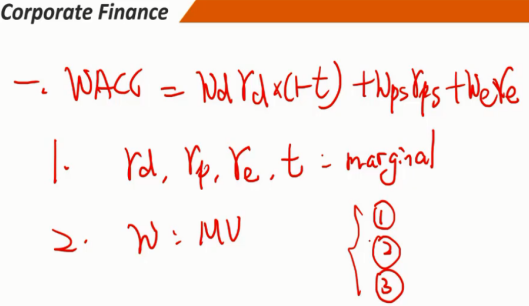 Corporate Finance
一. WACC = Wd rd×(1-t) + Wps rps + We re
1. rd, rp, re, t : marginal
2. W : MV
①
②
③